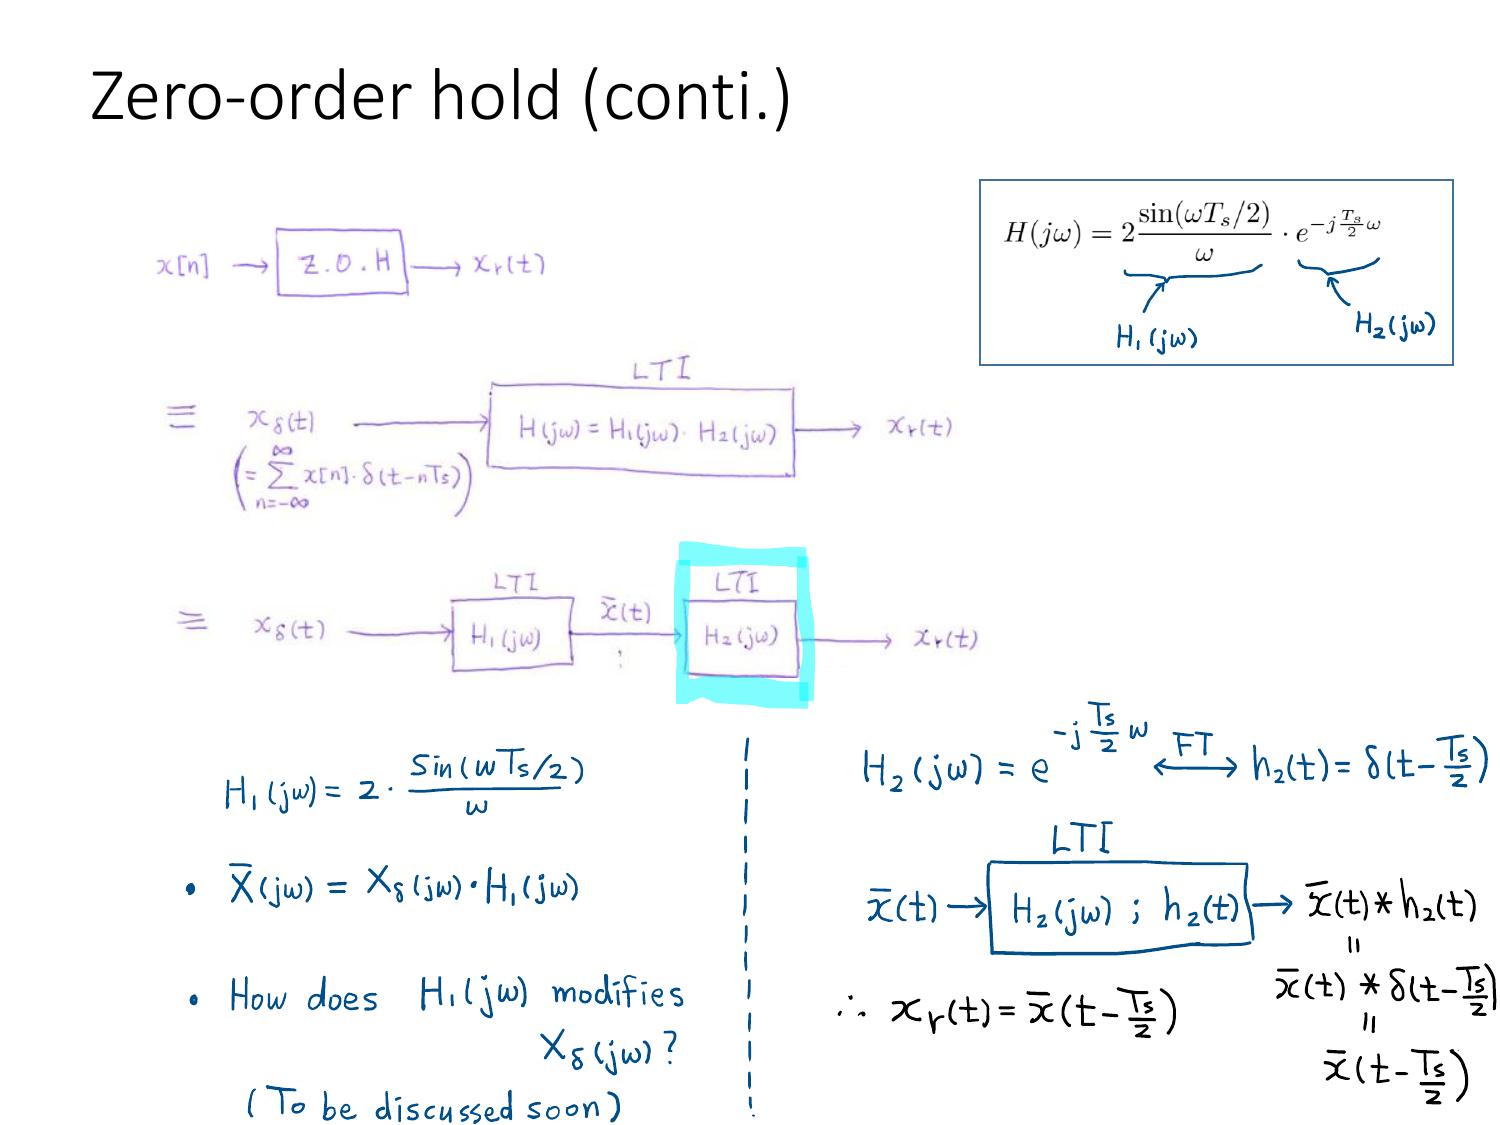 Zero-order hold (conti.)
H(jω) = 2 sin(ωTs/2)/ω · e^{-j Ts/2 ω}
H₁(jω) H₂(jω)
x[n] → Z.O.H → xr(t)
LTI
≡ xδ(t) → H(jω) = H₁(jω) · H₂(jω) → xr(t)
(= ∑_{n=-∞}^{∞} x[n]·δ(t-nTs))
LTI x̄(t) LTI
≡ xδ(t) → H₁(jω) → H₂(jω) → xr(t)
H₁(jω) = 2 · Sin(ωTs/2)/ω
• X̄(jω) = Xδ(jω)·H₁(jω)
• How does H₁(jω) modifies
Xδ(jω)?
(To be discussed soon)
H₂(jω) = e^{-j Ts/2 ω} ←FT→ h₂(t) = δ(t-Ts/2)
LTI
x̄(t) → H₂(jω) ; h₂(t) → x̄(t)*h₂(t)
=
x̄(t) * δ(t-Ts/2)
=
x̄(t-Ts/2)
∴ xr(t) = x̄(t-Ts/2)